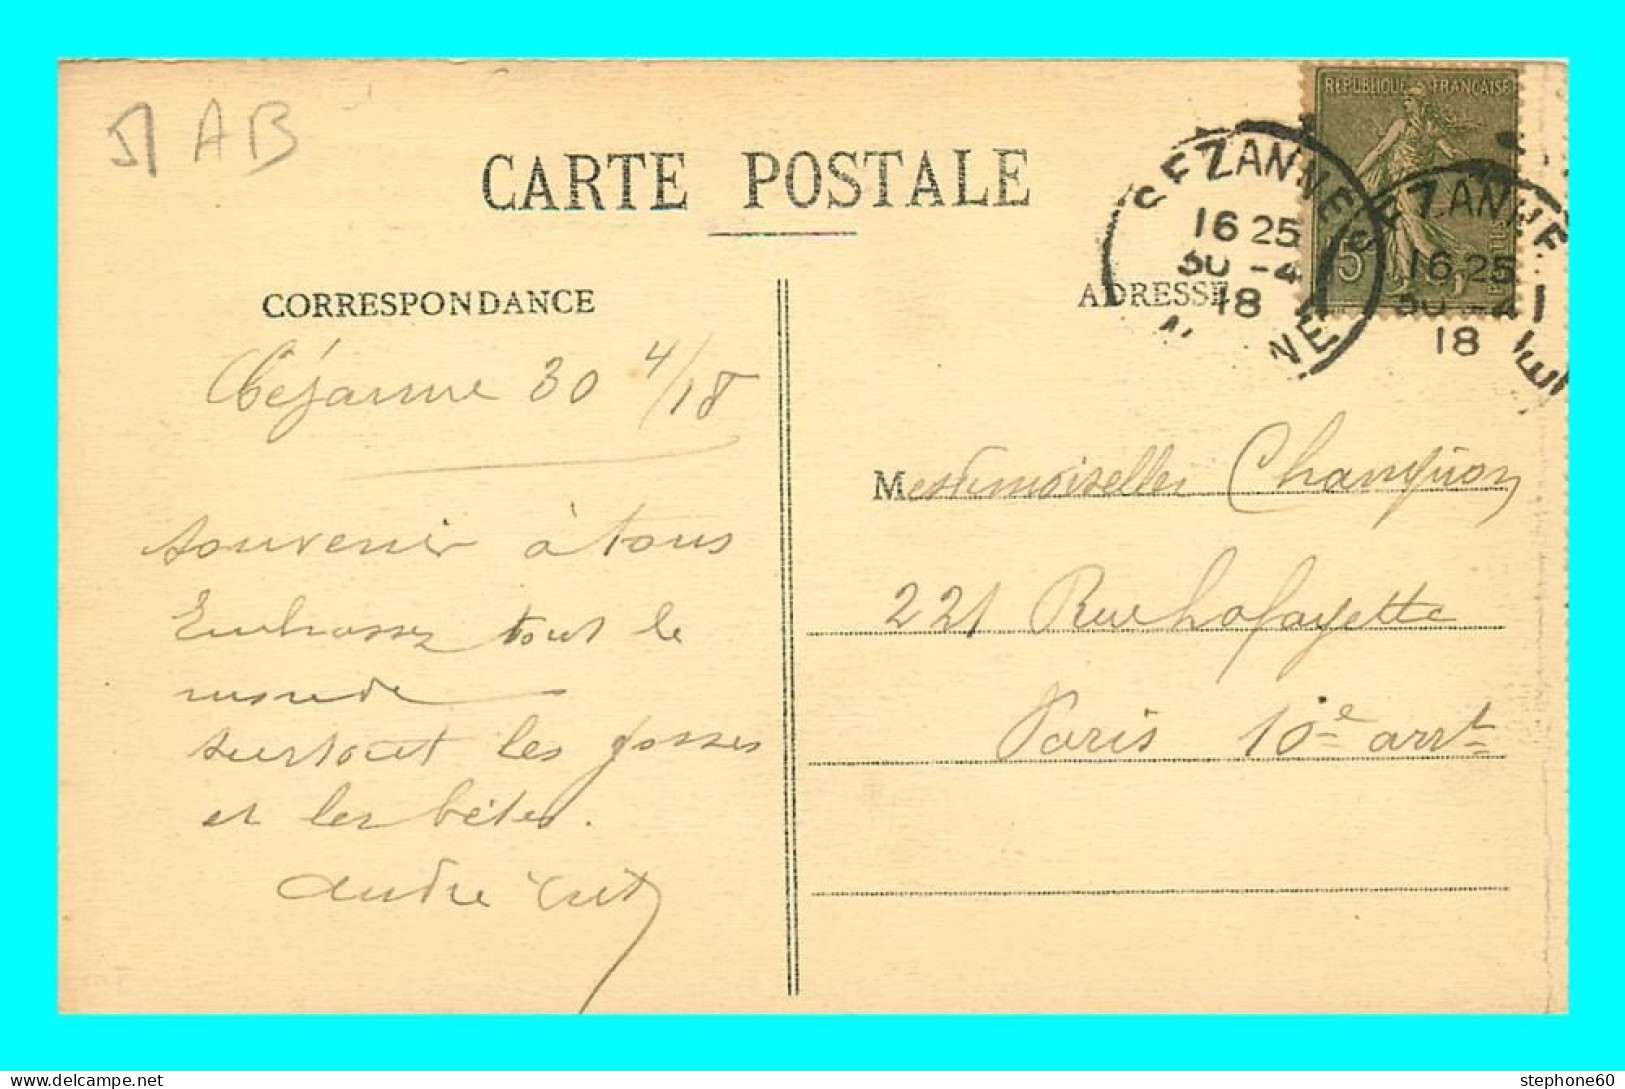 AB
CARTE POSTALE
REPUBLIQUE FRANÇAISE
SEZANNE
16 25
30 -4
18
16 25
30 -4
18
CORRESPONDANCE
ADRESSE
30 4/18
souvenir à tous
Embrassez tout le
monde
surtout les gosses
et les bêtes.
andré
Mesdemoiselles Champion
221 Rue Lafayette
Paris 10e arrt
stephone60
delcampe.net